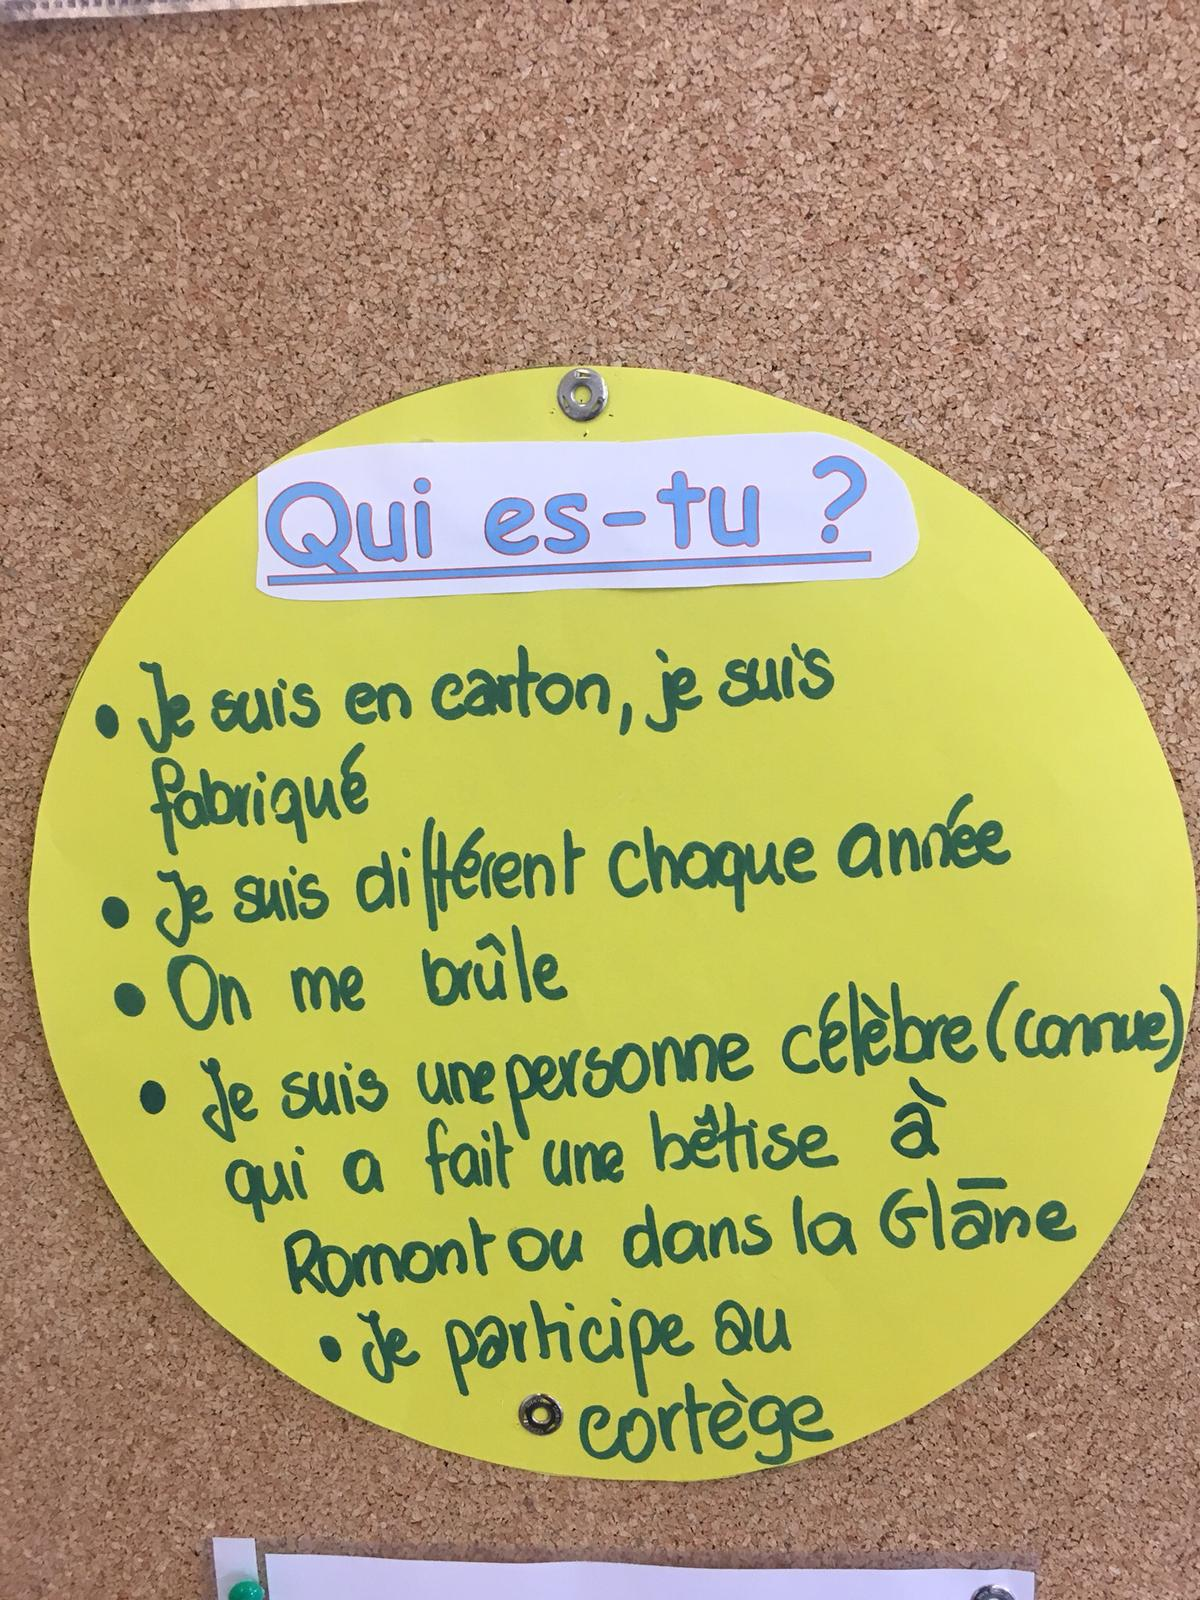 Qui es-tu ?
• Je suis en carton, je suis
fabriqué
• Je suis différent chaque année
• On me brûle
• Je suis une personne célèbre (connue)
qui a fait une bêtise à
Romont ou dans la Glāne
• Je participe au
cortège